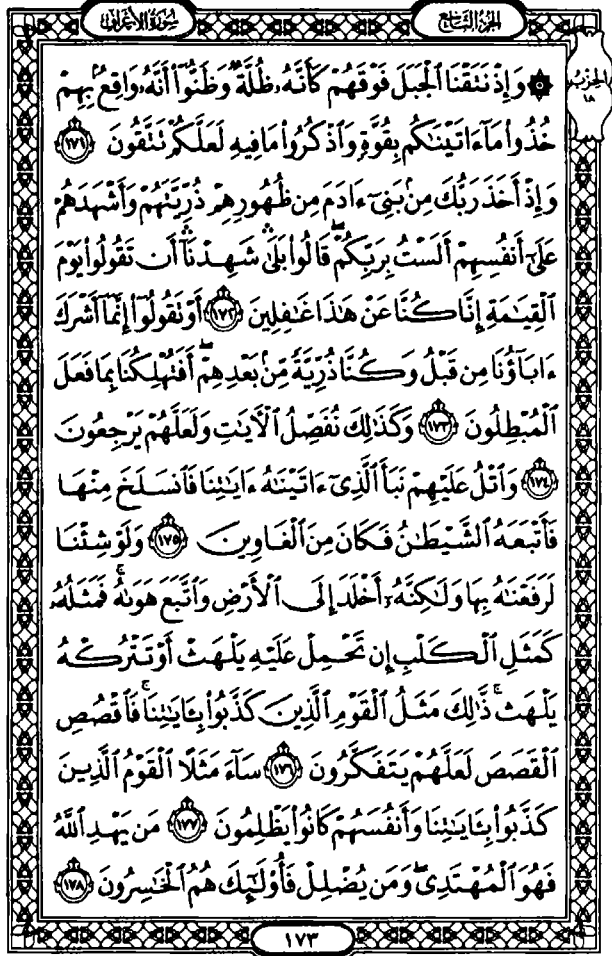 سُورَةُ الأَعْرَافِ
الجُزْءُ التَّاسِعُ
الحِزْب
١٨
۞ وَإِذْ نَتَقْنَا ٱلْجَبَلَ فَوْقَهُمْ كَأَنَّهُۥ ظُلَّةٌ وَظَنُّوٓا۟ أَنَّهُۥ وَاقِعٌۢ بِهِمْ
خُذُوا۟ مَآ ءَاتَيْنَٰكُم بِقُوَّةٍ وَٱذْكُرُوا۟ مَا فِيهِ لَعَلَّكُمْ تَتَّقُونَ ١٧١
وَإِذْ أَخَذَ رَبُّكَ مِنۢ بَنِىٓ ءَادَمَ مِن ظُهُورِهِمْ ذُرِّيَّتَهُمْ وَأَشْهَدَهُمْ
عَلَىٰٓ أَنفُسِهِمْ أَلَسْتُ بِرَبِّكُمْ ۖ قَالُوا۟ بَلَىٰ ۛ شَهِدْنَآ ۛ أَن تَقُولُوا۟ يَوْمَ
ٱلْقِيَٰمَةِ إِنَّا كُنَّا عَنْ هَٰذَا غَٰفِلِينَ ١٧٢ أَوْ تَقُولُوٓا۟ إِنَّمَآ أَشْرَكَ
ءَابَآؤُنَا مِن قَبْلُ وَكُنَّا ذُرِّيَّةً مِّنۢ بَعْدِهِمْ ۖ أَفَتُهْلِكُنَا بِمَا فَعَلَ
ٱلْمُبْطِلُونَ ١٧٣ وَكَذَٰلِكَ نُفَصِّلُ ٱلْـَٔايَٰتِ وَلَعَلَّهُمْ يَرْجِعُونَ
١٧٤ وَٱتْلُ عَلَيْهِمْ نَبَأَ ٱلَّذِىٓ ءَاتَيْنَٰهُ ءَايَٰتِنَا فَٱنسَلَخَ مِنْهَا
فَأَتْبَعَهُ ٱلشَّيْطَٰنُ فَكَانَ مِنَ ٱلْغَاوِينَ ١٧٥ وَلَوْ شِئْنَا
لَرَفَعْنَٰهُ بِهَا وَلَٰكِنَّهُۥٓ أَخْلَدَ إِلَى ٱلْأَرْضِ وَٱتَّبَعَ هَوَىٰهُ ۚ فَمَثَلُهُۥ
كَمَثَلِ ٱلْكَلْبِ إِن تَحْمِلْ عَلَيْهِ يَلْهَثْ أَوْ تَتْرُكْهُ
يَلْهَث ۚ ذَّٰلِكَ مَثَلُ ٱلْقَوْمِ ٱلَّذِينَ كَذَّبُوا۟ بِـَٔايَٰتِنَا ۚ فَٱقْصُصِ
ٱلْقَصَصَ لَعَلَّهُمْ يَتَفَكَّرُونَ ١٧٦ سَآءَ مَثَلًا ٱلْقَوْمُ ٱلَّذِينَ
كَذَّبُوا۟ بِـَٔايَٰتِنَا وَأَنفُسَهُمْ كَانُوا۟ يَظْلِمُونَ ١٧٧ مَن يَهْدِ ٱللَّهُ
فَهُوَ ٱلْمُهْتَدِى ۖ وَمَن يُضْلِلْ فَأُو۟لَٰٓئِكَ هُمُ ٱلْخَٰسِرُونَ ١٧٨
١٧٣